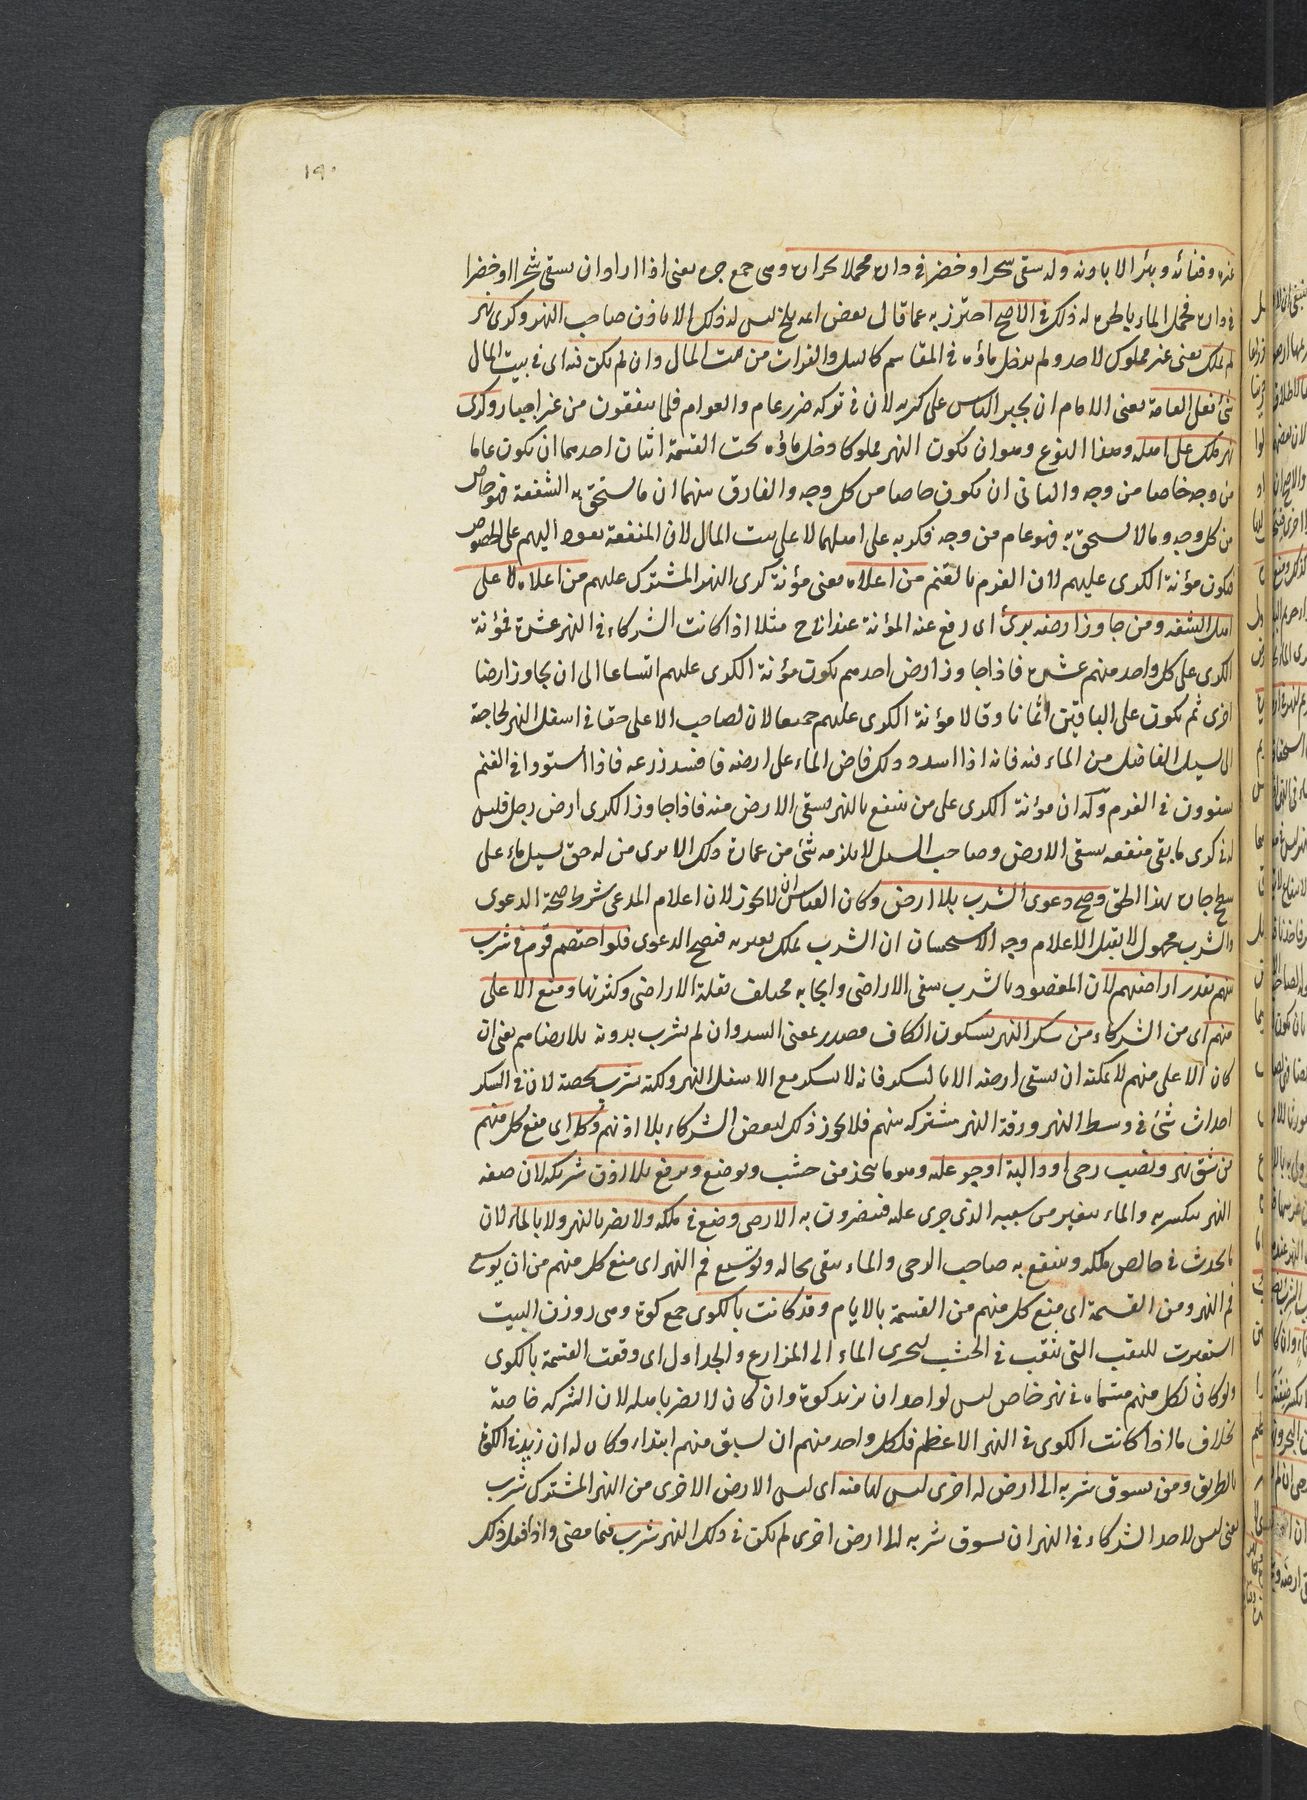 ١٩٠
غيره وقنائه وبئر الا باذنه وله سقى شجر او خضر في داره محملا بجراره وهى جمع جره يعنى اذا اراد ان يسقى شجرا او خضرا
في داره فحمل الماء بالجره له ذلك في الاصح احترز به عما قال بعض ليس له ذلك الا باذن صاحب النهر وكرى نهر
لم يملك يعنى غير مملوك لاحد ولم يدخل ماؤه في المقاسم كالنيل والفرات من بيت المال وان لم يكن فيه اى في بيت المال
شئ فعلى العامة يعنى الامام ان يجبر الناس على كريه لان في تركه ضرر عام والعوام قلما ينفقون من غير اجبار وكرى
نهر ملك على اهله وهذا النوع وهو ان يكون النهر مملوكا دخل ماؤه تحت القسمة اثنان احدهما ان يكون عاما
من وجه خاصا من وجه والثانى ان يكون خاصا من كل وجه والفارق بينهما ان ما يستحق به الشفعة فهو خاص
من كل وجه وما لا يستحق به فهو عام من وجه فكريه على اهلهما لا على بيت المال لان المنفعة تعود اليهم على الخصوص
فيكون مؤنة الكرى عليهم لان الغرم بالغنم من اعلاه يعنى مؤنة كرى النهر المشترك عليهم من اعلاه لا على
اهل الشفه ومن جاوز ارضه برئ اى رفع عنه المؤنة عند ابى ح مثلا اذا كانت الشركاء في النهر عشرة فمؤنة
الكرى على كل واحد منهم عشره فاذا جاوز ارض احدهم يكون مؤنة الكرى عليهم اتساعا الى ان يجاوز ارضا
اخرى ثم يكون على الباقين اثمانا وقالا مؤنة الكرى عليهم جميعا لان لصاحب الاعلى حقا في اسفل النهر لحاجة
الى تسييل الفاضل من الماء فيه فانه اذا انسد ذلك فاض الماء على ارضه فافسد زرعه فاذا استووا في الغنم
يستوون في الغرم وله ان مؤنة الكرى على من ينتفع بالنهر بسقى الارض منه فاذا جاوز الكرى ارض رجل فليس
له في كرى ما بقى منفعه سقى الارض وصاحب السيل لا يلزمه شئ من عمارة ذلك الا يرى من له حق تسييل ماء على
سطح جاره بهذا الحق وصح دعوى الشرب بلا ارض وكان القياس ان لا يجوز لان اعلام المدعى شرط صحة الدعوى
والشرب مجهول لا يقبل الاعلام وجه الاستحسان ان الشرب يملك بغيره فتصح الدعوى فلو اختصم قوم في شرب
بينهم بقدر اراضيهم لان المقصود بالشرب سقى الاراضى والحاجة مختلف بقلة الاراضى وكثرتها ومنع الاعلى
منهم اى من الشركاء من سكر النهر بسكون الكاف مصدر بمعنى السد وان لم يشرب بدونه بلا رضاهم يعنى ان
كان الاعلى منهم لا يمكنه ان يسقى ارضه الا بالسكر فانه لا يسكر مع الاسفل النهر ولكنه يشرب بحصته لان في السكر
احداث شئ في وسط النهر ورقبة النهر مشتركه بينهم فلا يجوز ذلك لبعض الشركاء بلا اذنهم وكل اى منع كل منهم
من شق نهر ونصب رحى او دالية او جسر عليه وهو ما يتخذ من خشب ويوضع ويرفع بلا اذن شريكه لان ضفة
النهر ينكسر به والماء يتغير من سببه الذى جرى عليه فيتضررون به الا رحى وضع في ملكه ولا يضر بالنهر ولا بالماء لان
ما يحدث في خالص ملكه وينتفع به صاحب الرحى والماء يبقى بحاله وتوسيع فم النهر اى منع كل منهم من ان يوسع
فم النهر ومن القسمة اى منع كل منهم من القسمة بالايام وقد كانت بالكوى جمع كوة وهى روزن البيت
استعيرت للثقب التى يثقب في الخشب ليجرى الماء الى المزارع والجداول اى وقعت القسمة بالكوى
ولو كان لكل منهم مسماه في نهر خاص ليس لواحد ان يزيد كوة وان كان لا يضر باهله لان الشركه خاصة
بخلاف ما اذا كانت الكوى في النهر الاعظم فلكل واحد منهم ان يشق منهم ابتداء وكان له ان يزيد في الكوى
بالطريق ومن يسوق شربه الى ارض له اخرى ليس لها منه اى ليس الارض الاخرى من النهر المشترك شرب
يعنى ليس لاحد الشركاء في النهر ان يسوق شربه الى ارض اخرى لم يكن في ذلك النهر شرب فيما مضى واذا فعل ذلك